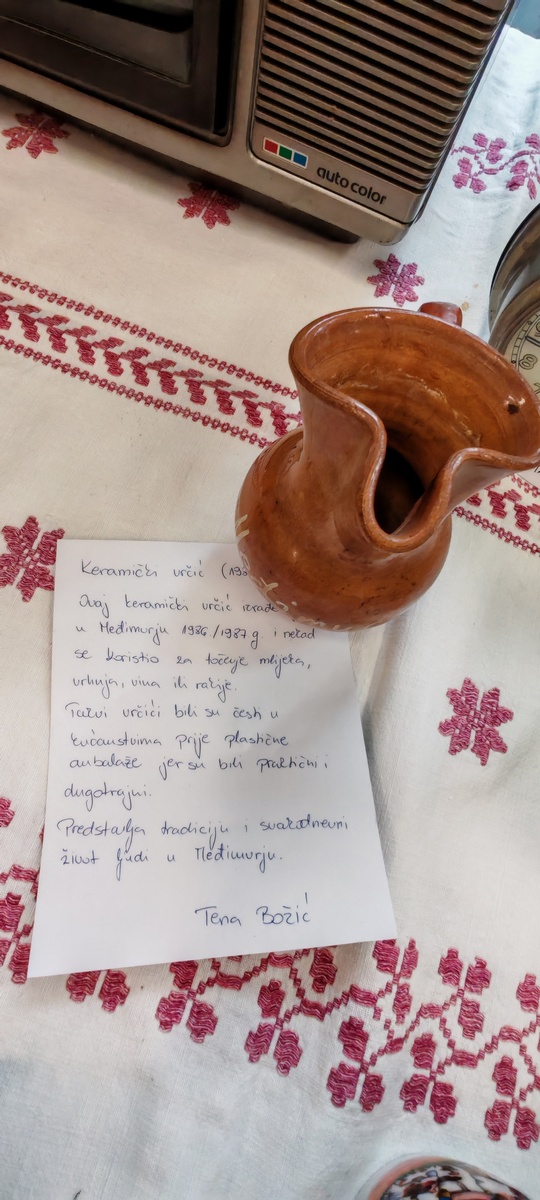 auto color
Keramički vrčić (198
Ovaj keramički vrčić izrađe
u Međimurju 1986/1987 g. i nekad
se koristio za točenje mlijeka,
vrhnja, vina ili rakije.
Takvi vrčići bili su česti u
kućanstvima prije plastične
ambalaže jer su bili praktični i
dugotrajni.
Predstavlja tradiciju i svakodnevni
život ljudi u Međimurju.
Tena Božić